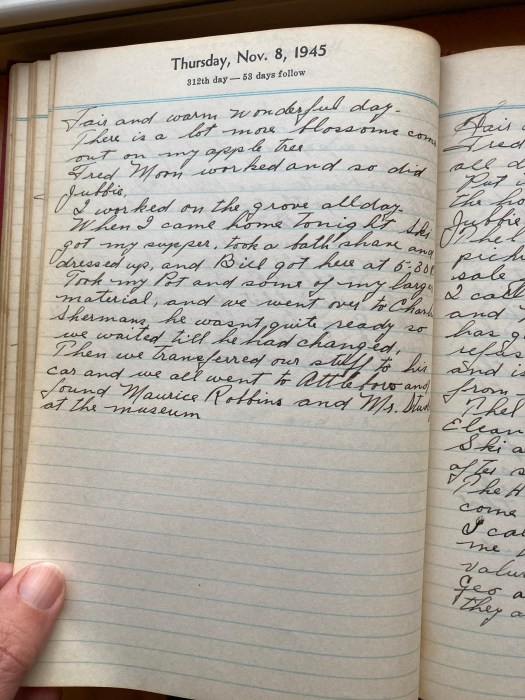 Thursday, Nov. 8, 1945
312th day — 53 days follow
Fair and warm wonderful day.
There is a lot more blossoms com
out on my apple tree
Fred Moon worked and so did
Jubbie,
I worked on the grove all day.
When I came home tonight Ski
got my supper, took a bath shave and
dressed up, and Bill got here at 6:30
Took my Pot and some of my large
material, and we went over to Charl
Shermans, he wasnt quite ready so
we waited till he had changed,
Then we transferred our stuff to his
car and we all went to Attleboro and
found Maurice Robbins and Mr. Stu
at the museum
Fair
Fred
all d
Put
the ho
Jubbie
Thel
pick
sale
I call
and
has g
refus
and i
from
Thel
Elean
Ski a
after s
The H
come
I ca
me
valu
Geo a
they a